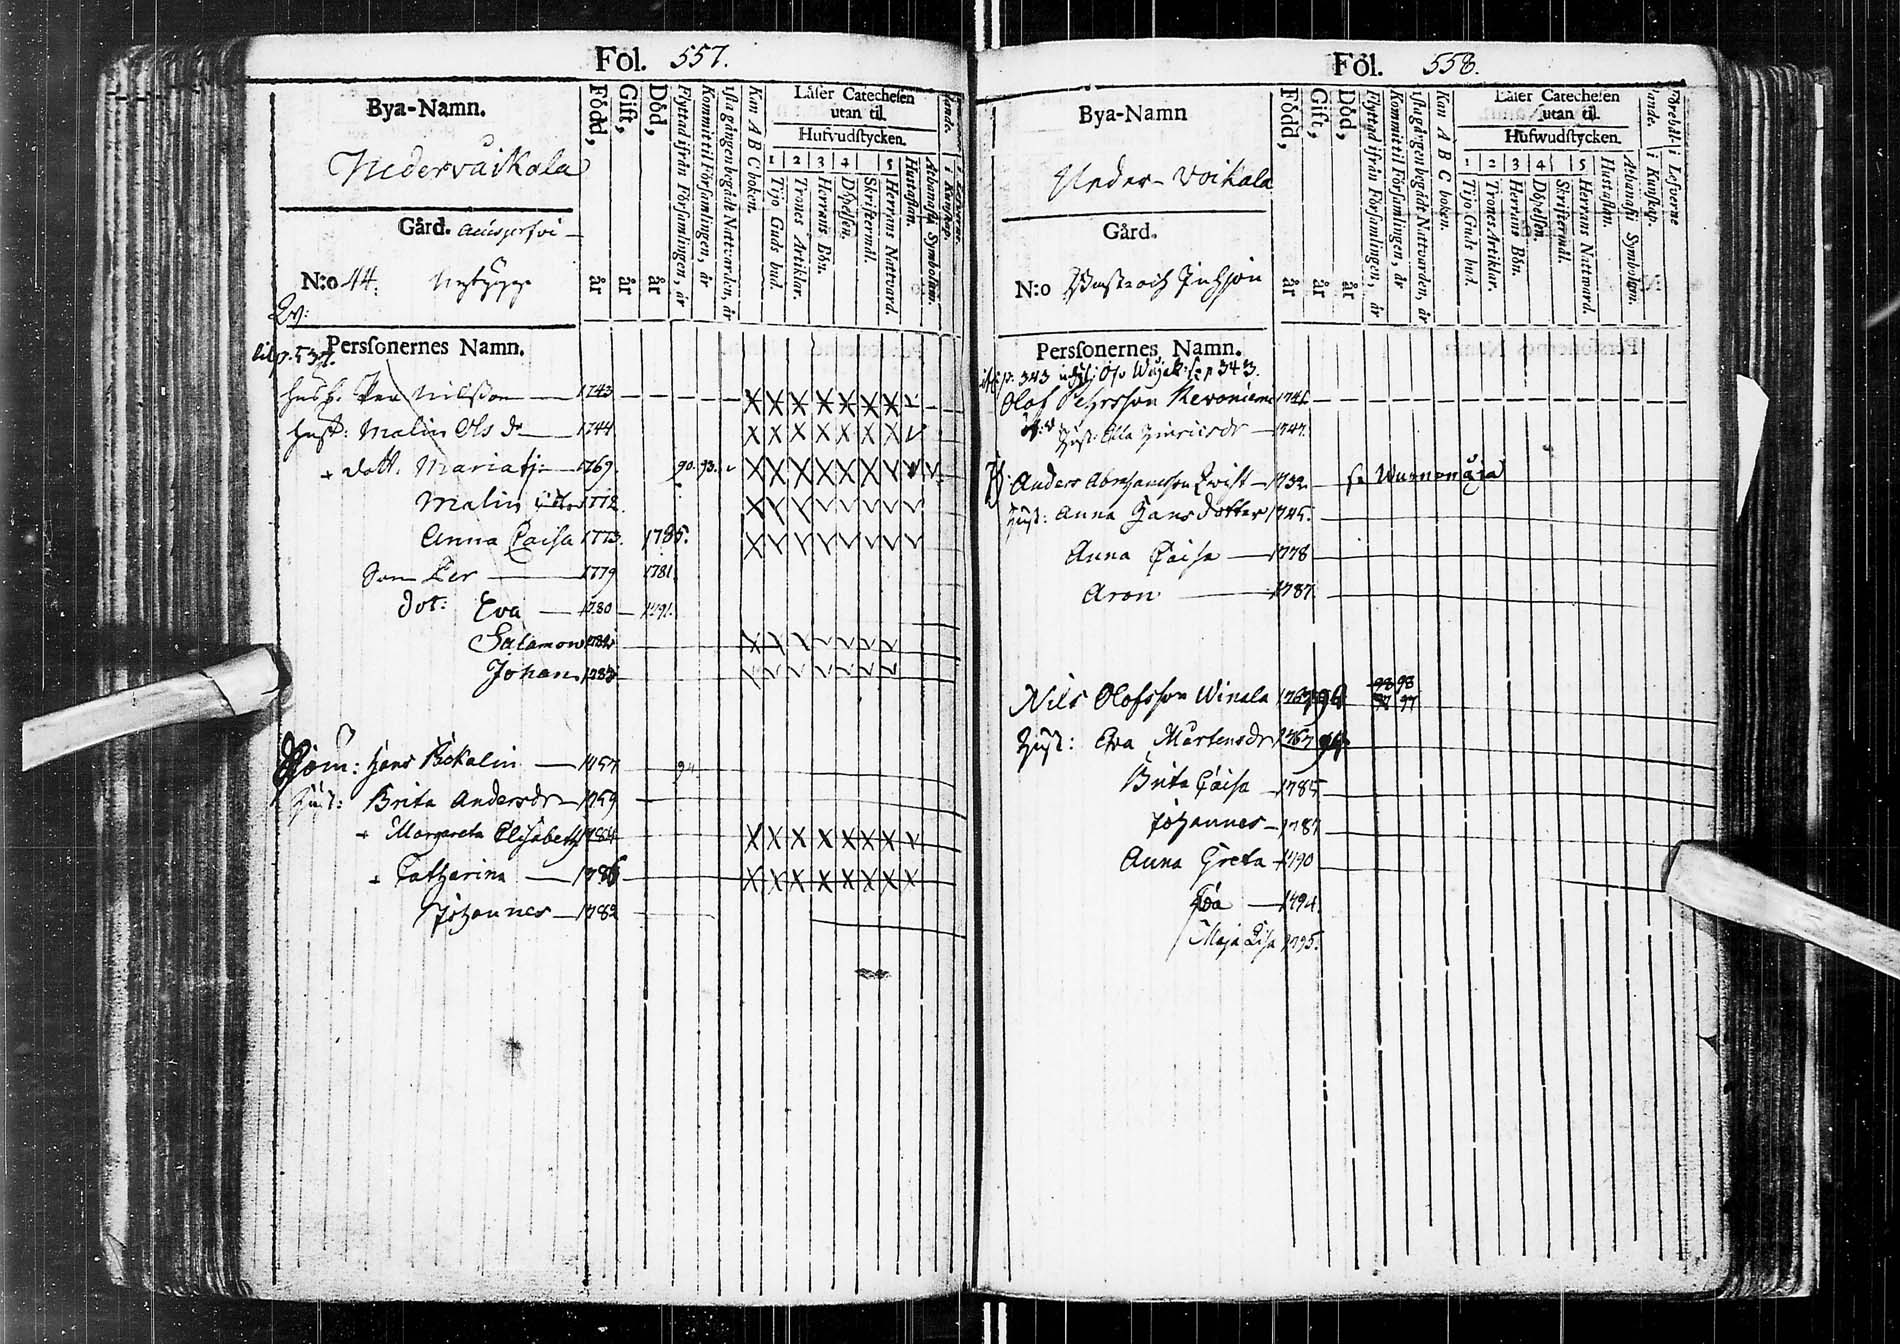 Fol. 557.
Bya-Namn.
Nedervåikala
Gård.
N:o 44. Nybygge
Född, år
Gift, år
Död, år
Flyttad ifrån Församlingen, år
Kommit til Församlingen, år
1sta gången begådt Nattvarden, år
Kan A B C boken.
Låser Catechesen
utan til.
Hufvudstycken.
1 2 3 4 5
Tijo Guds bud.
Trones Artiklar.
Herrans Bön.
Döpelsen.
Skriftermål.
Herrans Nattvard.
Hustaflan.
Athanasii Symbolum.
Personernes Namn.
p. 537.
Husb. Per Nilsson 1743
Hust: Malin Ols dr 1744
+ dott. Maria 1769. 90. 93.
Malin 1772.
Anna Caisa 1773. 1785.
Son Per 1779 1781.
dot: Eva 1780 1791.
Salamon 1782
Johan 1787
Hans Bokalin 1757 94
Hust: Brita Andersdr 1759
+ Margareta Elisabeth 1784
+ Catharina 1786
Johannes 1789
Fol. 558.
Bya-Namn
Neder-Voikala
Gård.
N:o
Född, år
Gift, år
Död, år
Flyttad ifrån Församlingen, år
Kommit til Församlingen, år
1sta gången begådt Nattvarden, år
Kan A B C boken.
Låser Catechesen
utan til.
Hufwudstycken.
1 2 3 4 5
Tijo Guds bud.
Trones Artiklar.
Herrans Bön.
Döpelsen.
Skriftermål.
Herrans Nattward.
Hustaflan.
Athanasii Symbolum.
i Kunskap.
i Lefverne
Personernes Namn.
p. 343 p 343.
Olof Pehrsson Kevoniemi 1741
Hust. Ella Hinricsdr 1747.
Anders Abrahamsson Qwist 1732 Wurnonåja
Hust: Anna Hansdotter 1745.
Anna Caisa 1778
Aron 1787.
Nils Olofsson Winala 98 98
97 97
Hust: Eva Mårtensdr 1767
Brita Caisa 1785
Johannes 1787
Anna Greta 1790
1794.
Maja Lisa 1795.